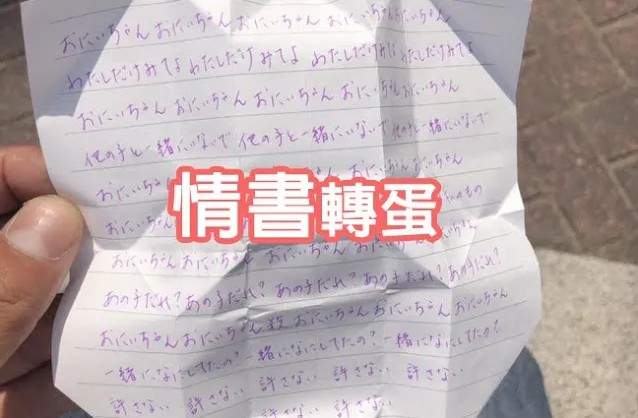 おにいちゃん おにいちゃん おにいちゃん おにいちゃん おにいちゃん
わたしだけみてよ わたしだけみてよ わたしだけみてよ わたしだけみてよ
おにいちゃん おにいちゃん おにいちゃん おにいちゃん おにいちゃん
他の子と一緒にいないで 他の子と一緒にいないで 他の子と一緒にいないで
おにいちゃん
情書轉蛋
おにいちゃん おにいちゃん おにいちゃん おにいちゃん
あの子だれ?あの子だれ?あの子だれ?あの子だれ?あの子だれ?
おにいちゃん おにいちゃん おにいちゃん おにいちゃん おにいちゃん
一緒になにしてたの?一緒になにしてたの?一緒になにしてたの?
許さない 許さない 許さない 許さない 許さない
許さない 許さない 許さない 許さない